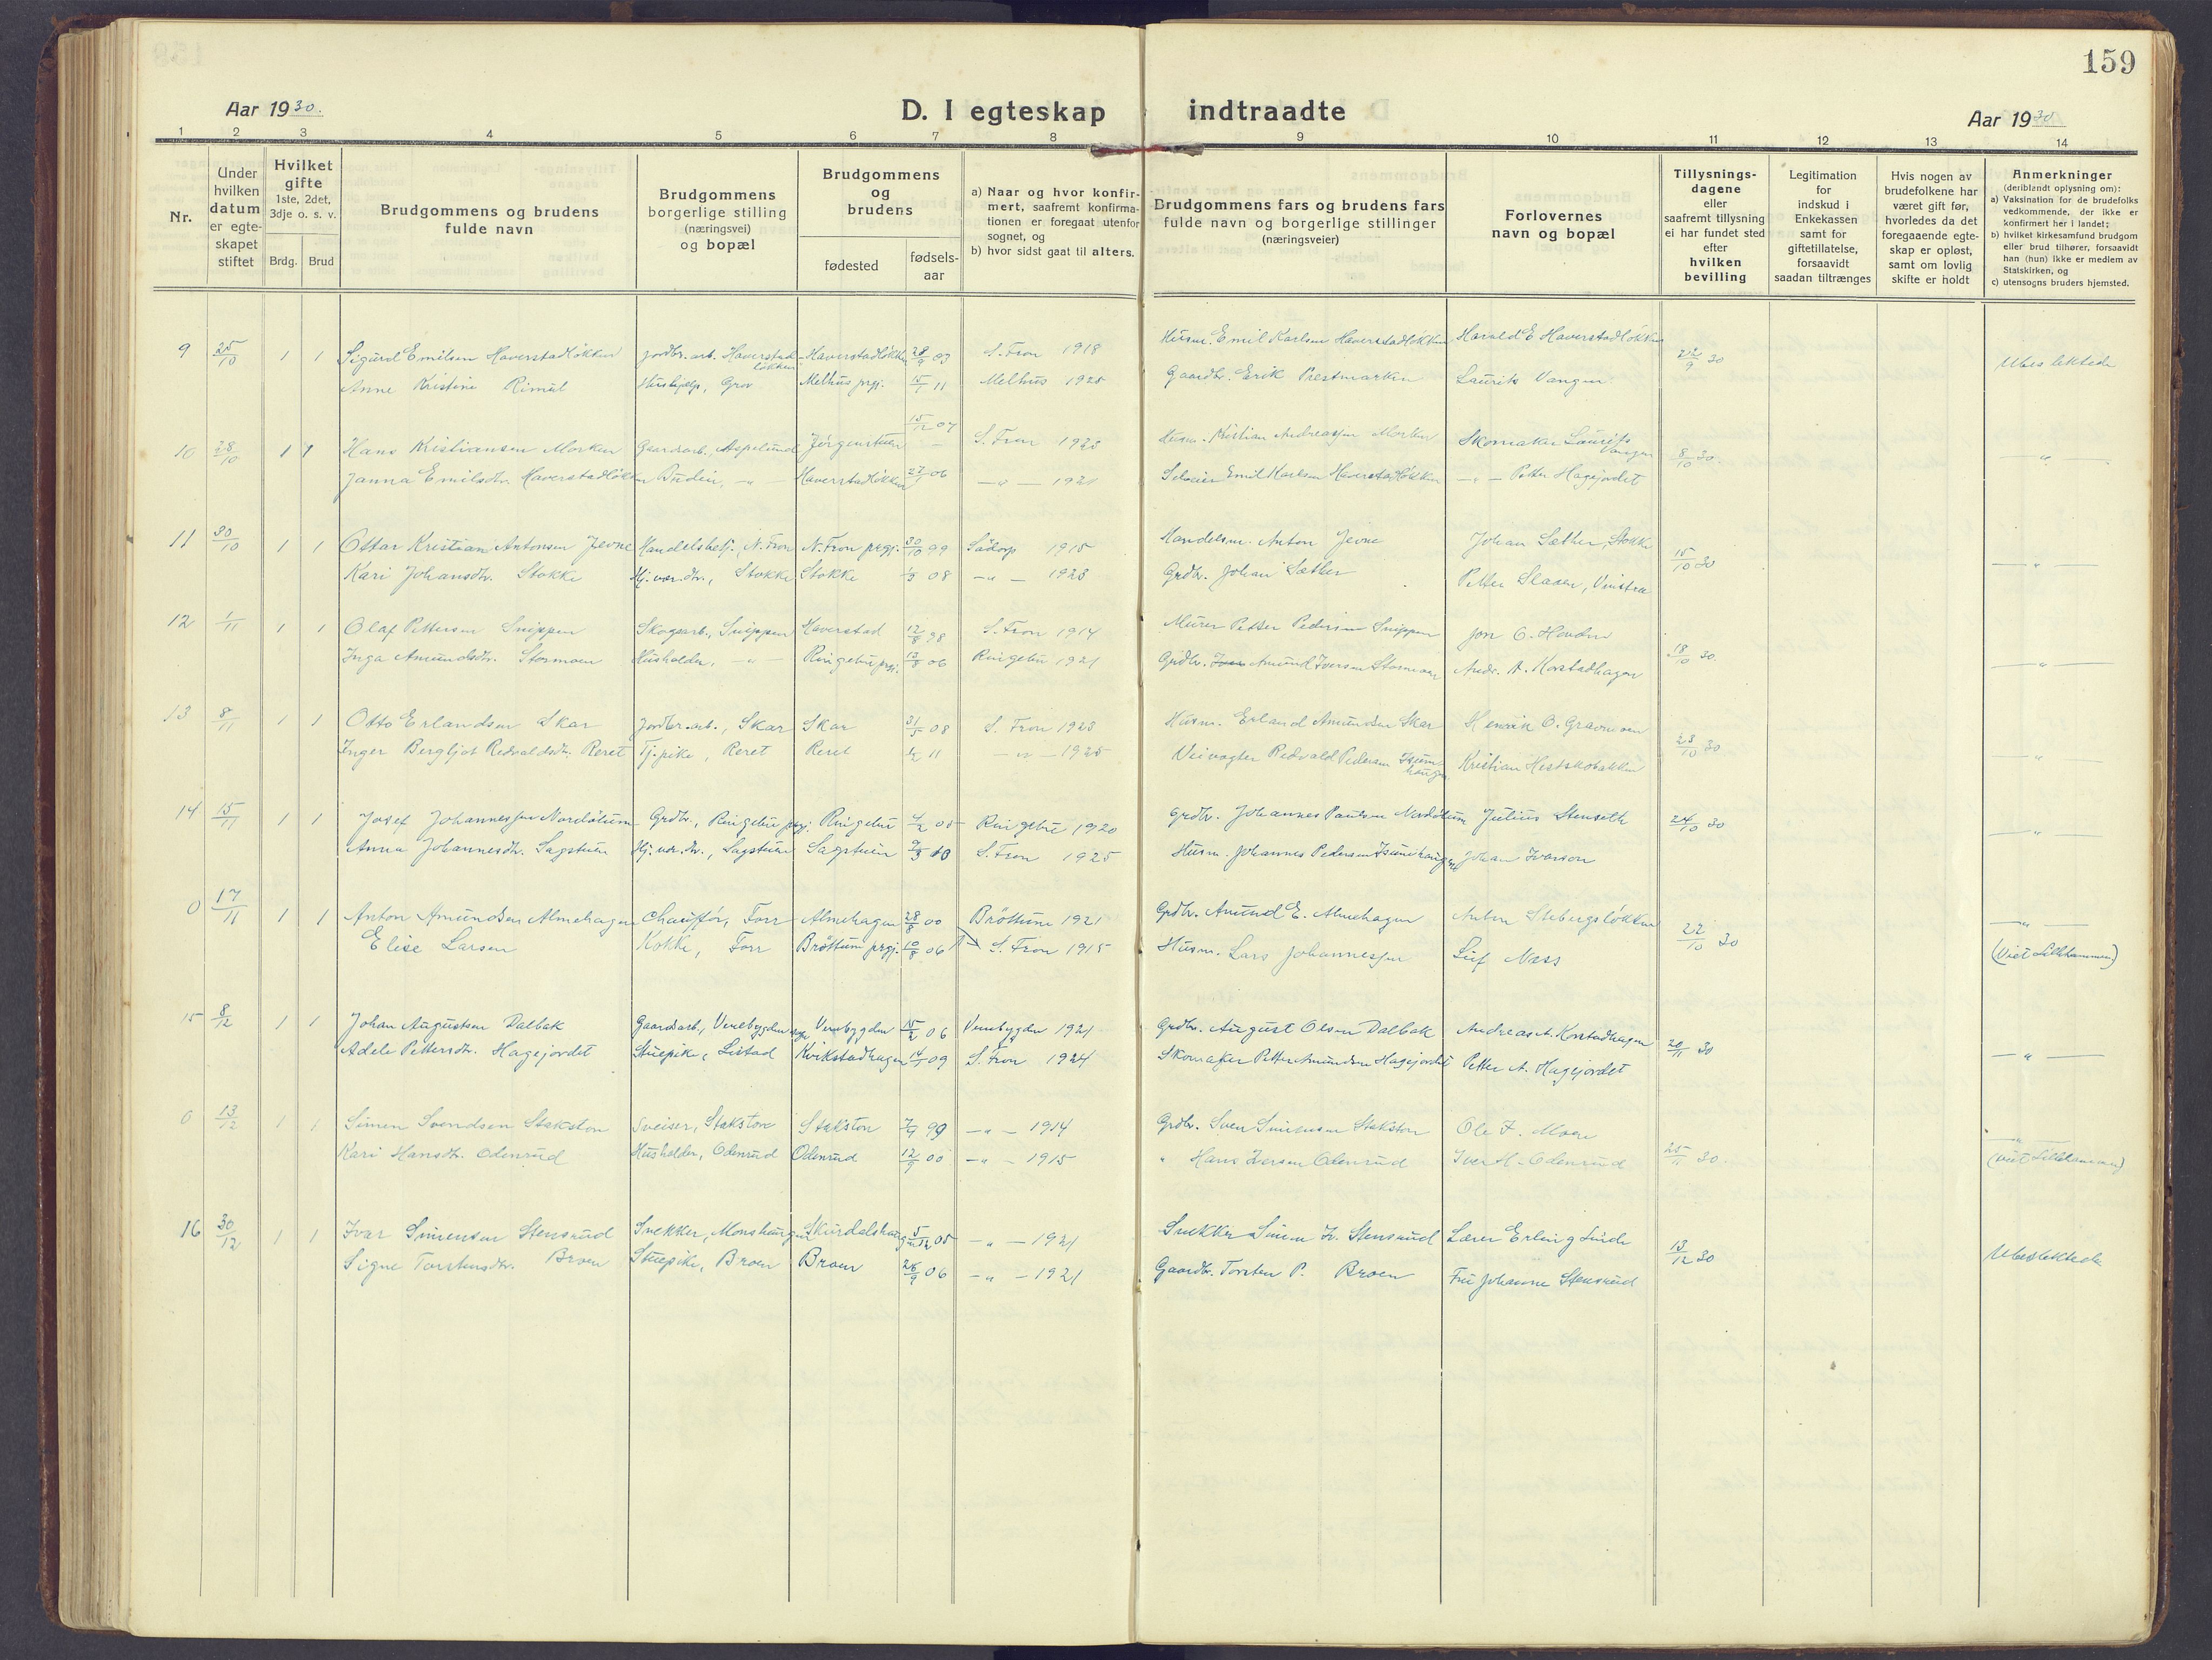 159
Aar 1930.
D. I egteskap indtraadte
Aar 1930
1 2 3 4 5 6 7 8 9 10 11 12 13 14
Nr.
Under hvilken datum er egte-skapet stiftet
Hvilket gifte 1ste, 2det, 3dje o. s. v.
Brdg. Brud
Brudgommens og brudens fulde navn
Brudgommens borgerlige stilling (næringsvei) og bopæl
Brudgommens og brudens
fødested
fødsels-aar
a) Naar og hvor konfir-mert, saafremt konfirma-tionen er foregaat utenfor sognet, og
b) hvor sidst gaat til alters.
Brudgommens fars og brudens fars fulde navn og borgerlige stillinger (næringsveier)
Forlovernes navn og bopæl
Tillysnings-dagene eller saafremt tillysning ei har fundet sted efter hvilken bevilling
Legitimation for indskud i Enkekassen samt for giftetillatelse, forsaavidt saadan tiltrænges
Hvis nogen av brudefolkene har været gift før, hvorledes da det foregaaende egte-skap er opløst, samt om lovlig skifte er holdt
Anmerkninger (deriblandt oplysning om):
a) Vaksination for de brudefolks vedkommende, der ikke er konfirmert her i landet;
b) hvilket kirkesamfund brudgom eller brud tilhører, forsaavidt han (hun) ikke er medlem av Statskirken, og
c) utensogns bruders hjemsted.
9 25/10 1 1 Sigurd Emilsen Haverstadløkken Jordbr. arb. Haverstadløkken Haverstadløkken 28/9 03 S. Fron 1918 Husm. Emil Karlsen Haverstadløkken Harald E Haverstadløkken 22/9 30 Ubeslektede
Anne Kristine Rimul Hushjelp, Grov Melhus prgj. 15/1 11 Melhus 1925 Gaardbr. Erik Prestmarken Laurits Vangen
10 28/10 1 1 Hans Kristiansen Morken Gaardsarb., Aspelund Jørgenstuen 15/12 07 S. Fron 1923 Husm. Kristian Andreassen Morken Skomaker Laurits Vangen 8/10 30. — " —
Janna Emilsdtr. Haverstadløkken Budeie, — " — Haverstadløkken 27/1 06 — " — 1921 Emil Karlsen Haverstadløkken — " — Petter Hagejordet
11 30/10 1 1 Ottar Kristian Antonsen Jevne Handelsbetj., N. Fron N. Fron prgj. 30/10 99 Sødorp 1915 Handelsm. Anton Jevne Johan Sæther, Stokke 15/10 30 — " —
Kari Johansdtr. Stokke Hj. vær. dtr., Stokke Stokke 1/3 08 — " — 1923 Grdbr. Johan Sæther Petter Slaaen, Vinstra
12 1/11 1 1 Olaf Pettersen Snippen Skogsarb., Snippen Haverstad 12/8 98 S. Fron 1914 Murer Petter Pedersen Snippen Jon O. Hovden 18/10 30. — " —
Inga Amundsdtr. Stormoen Husholder, — " — Ringebu prgj. 13/8 06 Ringebu 1921 Grdbr. Amund Iversen Stormoen Andr. A. Korstadhagen
13 8/11 1 1 Otto Erlandsen Skar Jordbr. arb., Skar Skar 31/5 08 S. Fron 1923 Husm. Erland Amundsen Skar Henrik O. Gravmoen 23/10 30 — " —
Inger Bergljot Redvaldsdtr. Reret Tj. pike, Reret Reret 1/2 11 — " — 1925 Veivogter Redvald Pedersen Isumhaugen Kristian Hestskobakken
14 15/11 1 1 Josef Johannessen Nordstum Grdbr., Ringebu prgj. Ringebu 4/2 05 Ringebu 1920 Grdbr. Johannes Paulsen Nordstum Julius Stenseth 24/10 30 — " —
Anna Johannesdtr. Sagstuen Hj. vær. dtr., Sagstuen Sagstuen 9/3 10 S. Fron 1925 Husm. Johannes Pedersen Isumhaugen Johan Ivarson
0 17/11 1 1 Anton Amundsen Almehagen Chauffør, Forr Almehagen 28/8 00 Brøttum 1921 Grdbr. Amund E. Almehagen Anton Stebergsløkken 22/10 30 — " —
Elise Larsen Kokke, Forr Brøttum prgj. 10/8 06 S. Fron 1915 Husm. Lars Johannessen Leif Næss (Viet Lillehammer)
15 8/12 1 1 Johan Augustsen Dalbak Gaardsarb., Venebygden sogn Venebygden 15/2 06 Venebygden 1921 Grdbr. August Olsen Dalbak Andreas A. Korstadhagen 20/11 30 — " —
Adele Pettersdtr. Hagejordet Stuepike, Listad Kvikstadhagen 14/1 09 S. Fron 1924 Skomaker Petter Amundsen Hagejordet Petter A. Hagejordet
0 13/12 1 1 Simen Svendsen Stakston Sveiser, Stakston Stakston 7/9 99 — " — 1914 Grdbr. Sven Simensen Stakston Ole F. Moen 25/11 30. — " —
Kari Hansdtr. Odenrud Husholder, Odenrud Odenrud 12/9 00 — " — 1915 " Hans Iversen Odenrud Iver H. Odenrud (viet Lillehammer)
16 30/12 1 1 Ivar Simensen Stensrud Snekker, Monshaugen Skurdalshaugen 5/12 05 — " — 1921 Snekker Simen Iv. Stensrud Lærer Erling Linde 13/12 30 Ubeslektede
Signe Torstensdtr. Broen Stuepike, Broen Broen 28/9 06 — " — 1921 Gaardbr. Torsten P. Broen Fru Johanne Stensrud